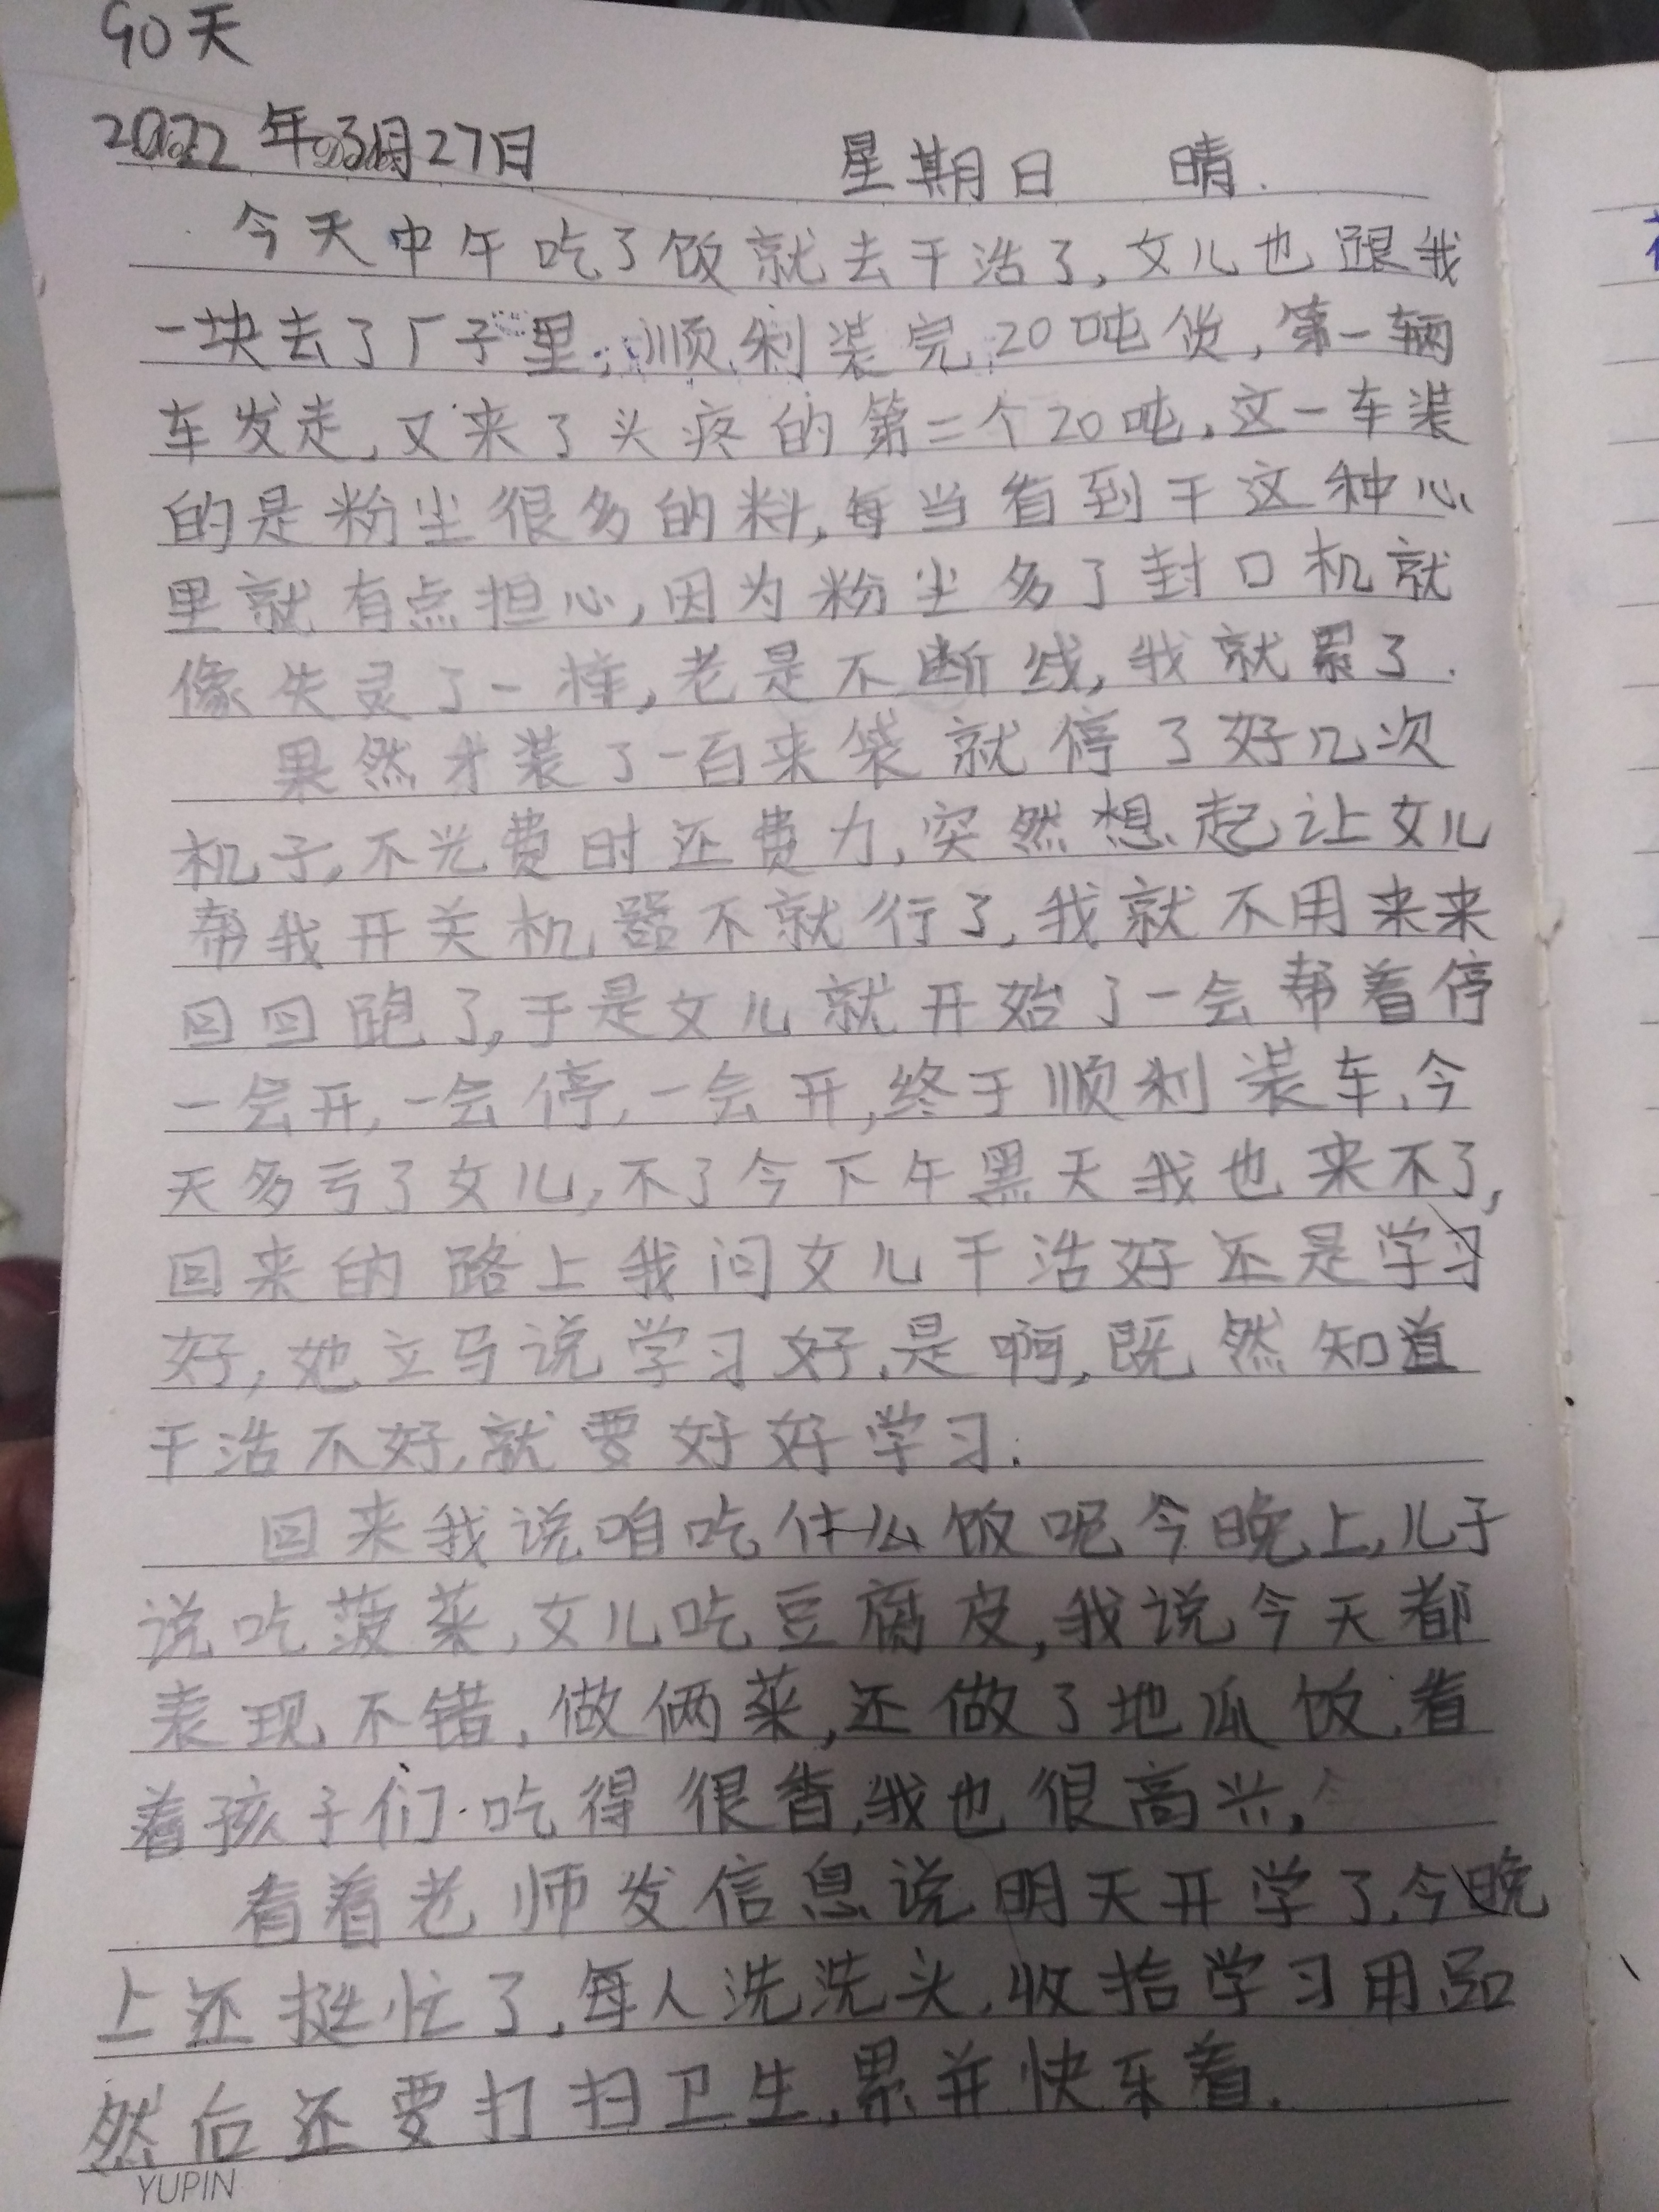 90天
2022年3月27日 星期日 晴.
今天中午吃了饭就去干活了,女儿也跟我
一块去了厂子里,顺利装完20吨货,第一辆
车发走,又来了头疼的第二个20吨,这一车装
的是粉尘很多的料,每当看到干这种心
里就有点担心,因为粉尘多了封口机就
像失灵了一样,老是不断线,我就累了.
果然才装了一百来袋就停了好几次
机子,不光费时还费力,突然想起让女儿
帮我开关机器不就行了,我就不用来来
回回跑了,于是女儿就开始了一会帮着停
一会开,一会停,一会开,终于顺利装车,今
天多亏了女儿,不了今下午黑天我也来不了,
回来的路上我问女儿干活好还是学习
好,她立马说学习好,是啊,既然知道
干活不好,就要好好学习.
回来我说咱吃什么饭呢今晚上,儿子
说吃菠菜,女儿吃豆腐皮,我说今天都
表现不错,做俩菜,还做了地瓜饭,看
着孩子们吃得很香,我也很高兴,
看着老师发信息说明天开学了,今晚
上还挺忙了,每人洗洗头,收拾学习用品
然后还要打扫卫生,累并快乐着.
YUPIN